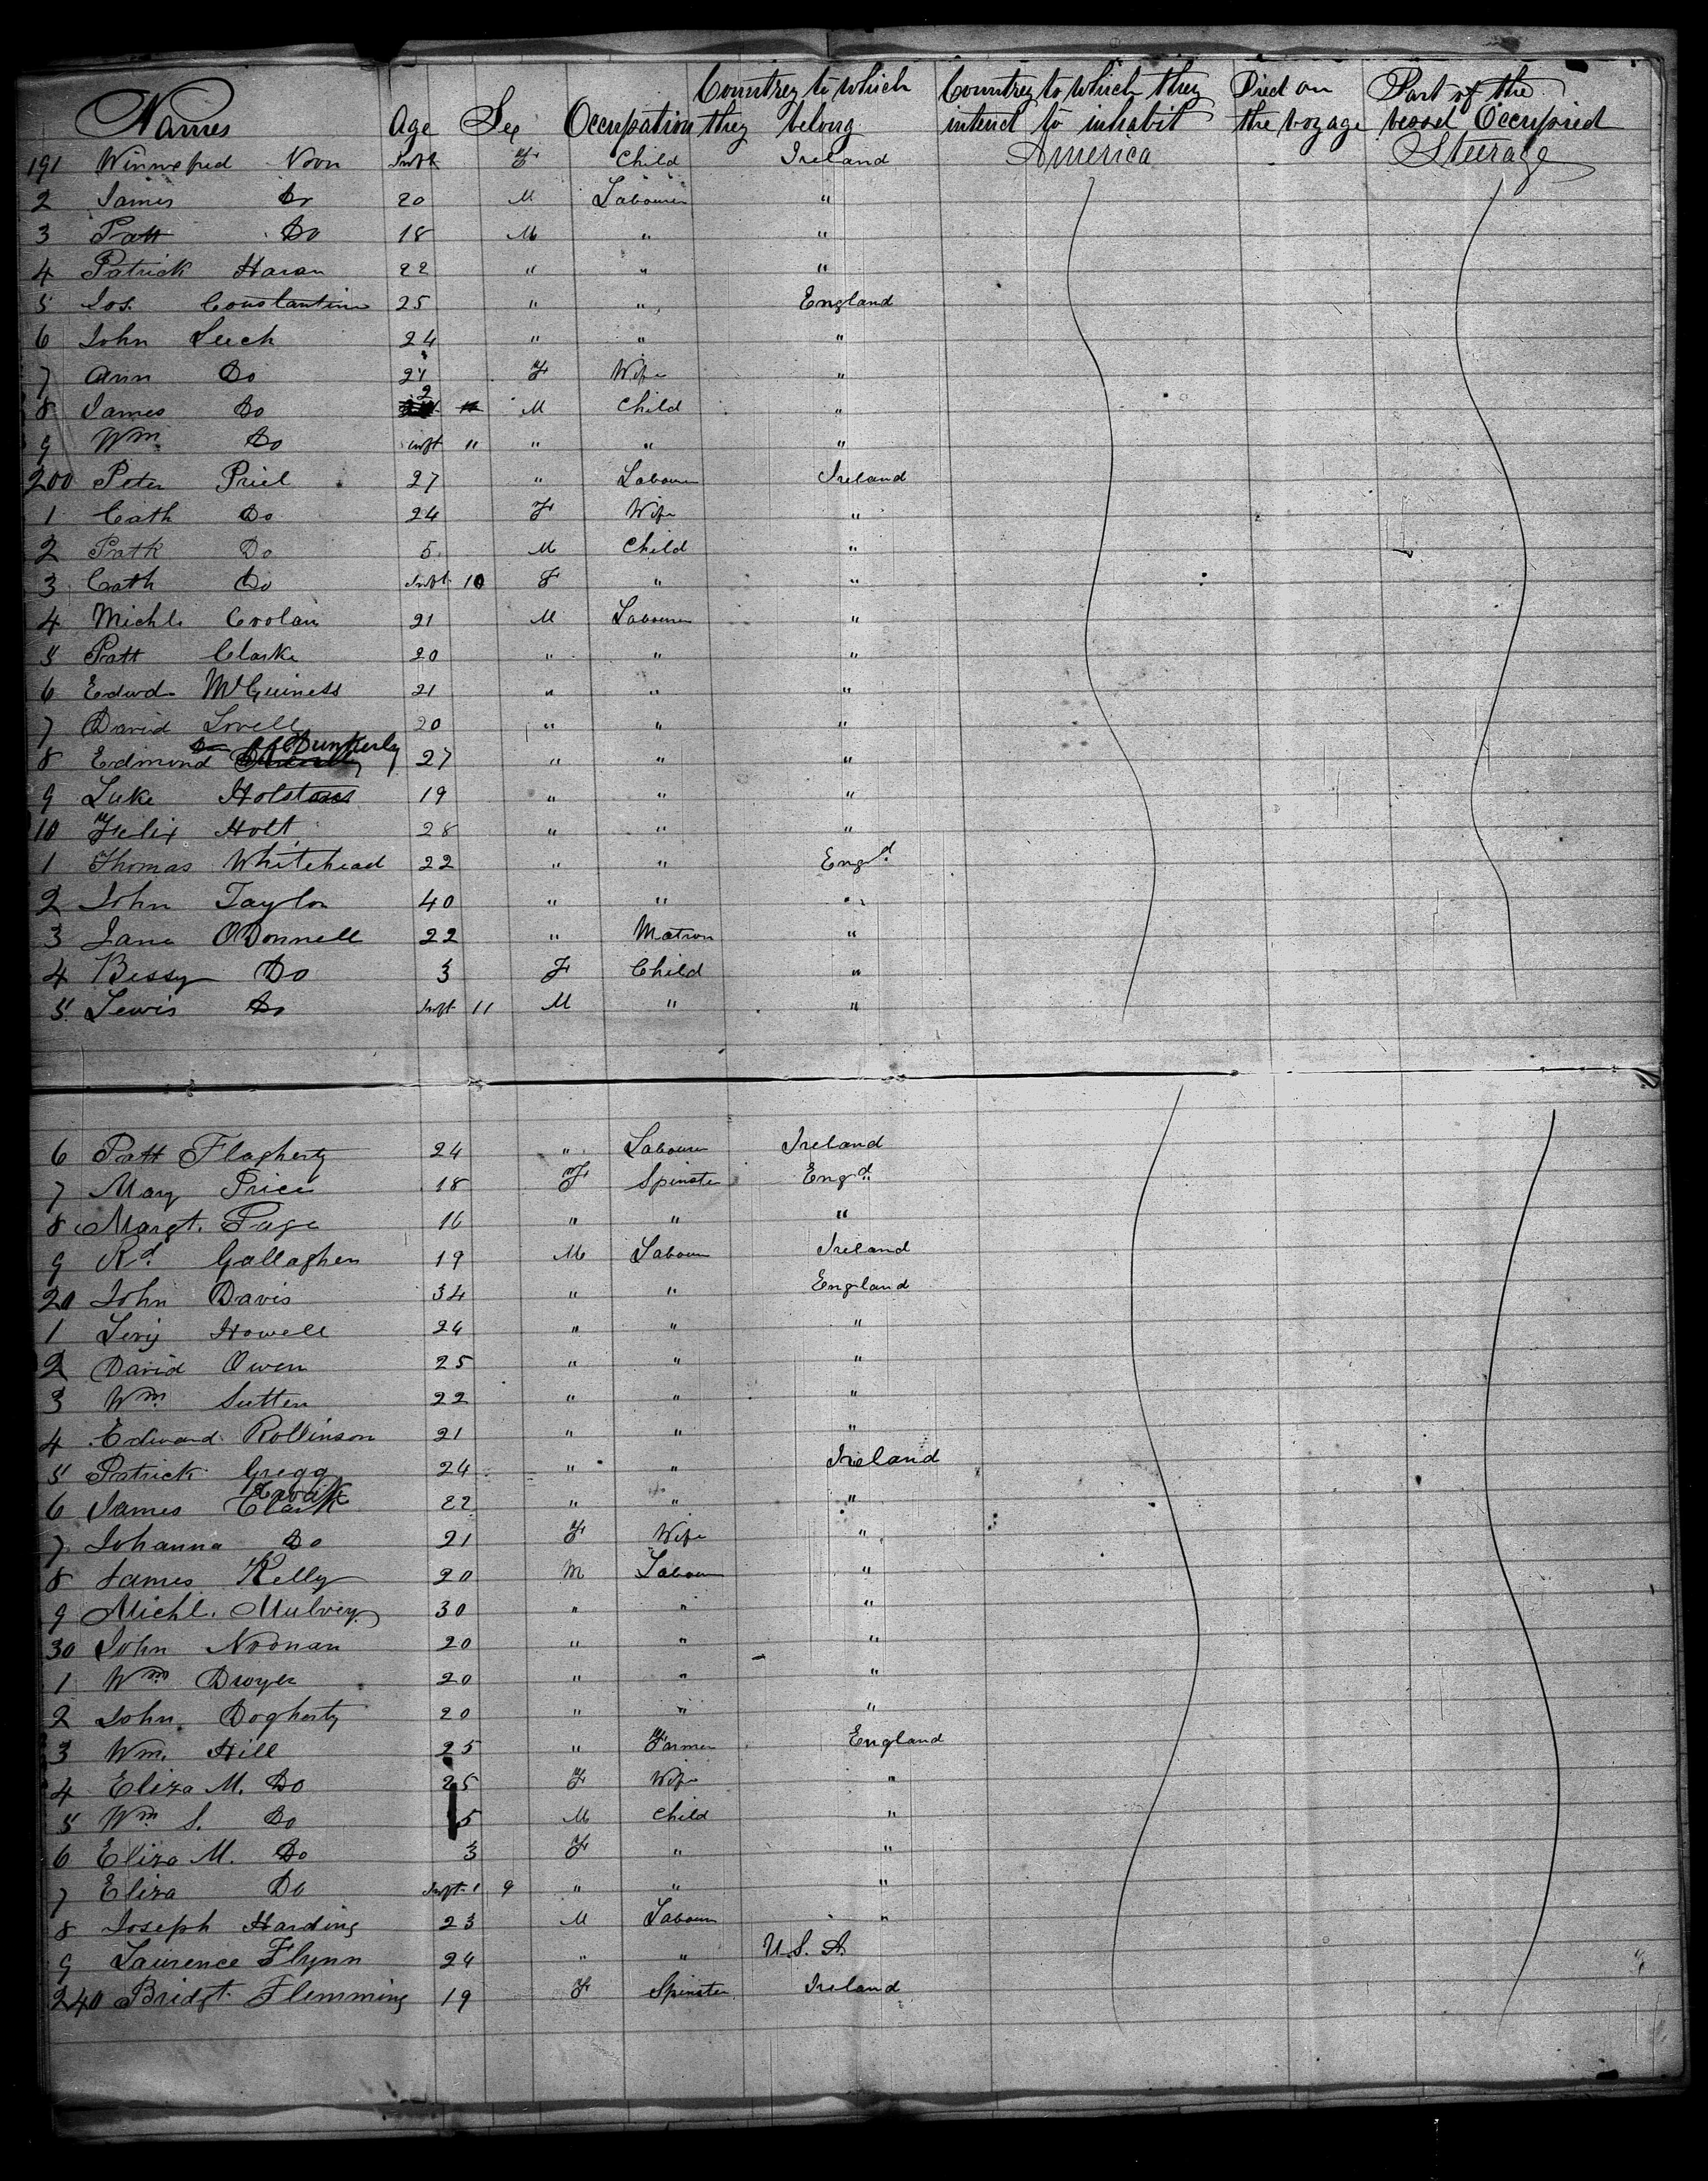 Names Age Sex Occupation Country to which they belong Country to which they intend to inhabit Died on the voyage Part of the vessel Occupied
191 Winnefred Noon Inft F Child Ireland America Steerage
2 James Do 20 M Labourer "
3 Patt Do 18 M " "
4 Patrick Haran 22 " " "
5 Jos. Constantine 25 " " England
6 John Leech 24 " " "
7 Ann Do 21 F Wife "
8 James Do 2 M Child "
9 Wm Do inft 11 " " "
200 Peter Priel 27 " Labourer Ireland
1 Cath Do 24 F Wife "
2 Patk Do 5 M Child "
3 Cath Do Inft 10 F " "
4 Michl. Crolan 21 M Labourer "
5 Patt Clarke 20 " " "
6 Edwd. McGuiness 21 " " "
7 David Lovell 20 " " "
8 Edmond Dunkerly 27 " " "
9 Luke 19 " " "
10 Felix Holt 28 " " "
1 Thomas Whitehead 22 " " Engd.
2 John Taylor 40 " " "
3 Jane O'Donnell 22 " Matron "
4 Bessy Do 3 F Child "
5 Lewis Do Inft 11 M " "
6 Patt Flagherty 24 " Labourer Ireland
7 Mary Price 18 F Spinster Engd.
8 Margt. Page 16 " " "
9 Rd. Gallagher 19 M Labour Ireland
20 John Davis 34 " " England
1 Levy Howell 24 " " "
2 David Owen 25 " " "
3 Wm. Sutten 22 " " "
4 Edward Rollinson 21 " " "
5 Patrick Gregg 24 " " Ireland
6 James 22 " " "
7 Johanna Do 21 F Wife "
8 James Kelly 20 M Labour "
9 Michl. Mulvey 30 " " "
30 John Noonan 20 " " "
1 Wm Dwyer 20 " " "
2 John Dogherty 20 " " "
3 Wm. Hill 25 " Farmer England
4 Eliza M. Do 25 F Wife "
5 Wm S. Do 5 M Child "
6 Eliza M. Do 3 F " "
7 Eliza Do Inft 9 " " "
8 Joseph Harding 23 M Labour "
9 Laurence Flynn 24 " " U.S.A.
240 Bridgt. Flemming 19 F Spinster Ireland